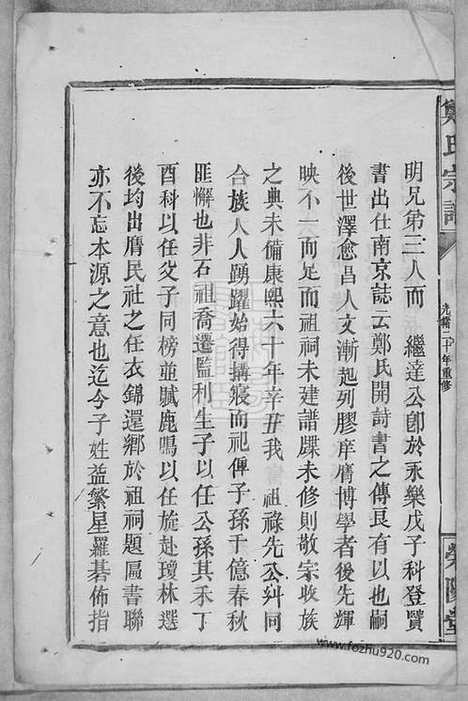 鄭氏宗譜
光緒二十年重修
滎陽堂
明兄第三人而 繼達公卽於永樂戊子科登賢
書出仕南京誌云鄭氏開詩書之傳良有以也嗣
後世澤愈昌人文漸起列膠庠膺博學者後先輝
映不一而足而祖祠未建譜牒未修則敬宗收族
之典未備康熙六十年辛丑我 祖祿先公糾同
合族人人踴躍始得搆寢而祀俾子孫千億春秋
匪懈也非石祖喬遷監利生子以任公孫其禾丁
酉科以任父子同榜並賦鹿鳴以任旋赴瓊林選
後均出膺民社之任衣錦還鄉於祖祠題匾書聯
亦不忘本源之意也迄今子姓益繁星羅碁佈指
www.fozhu920.com